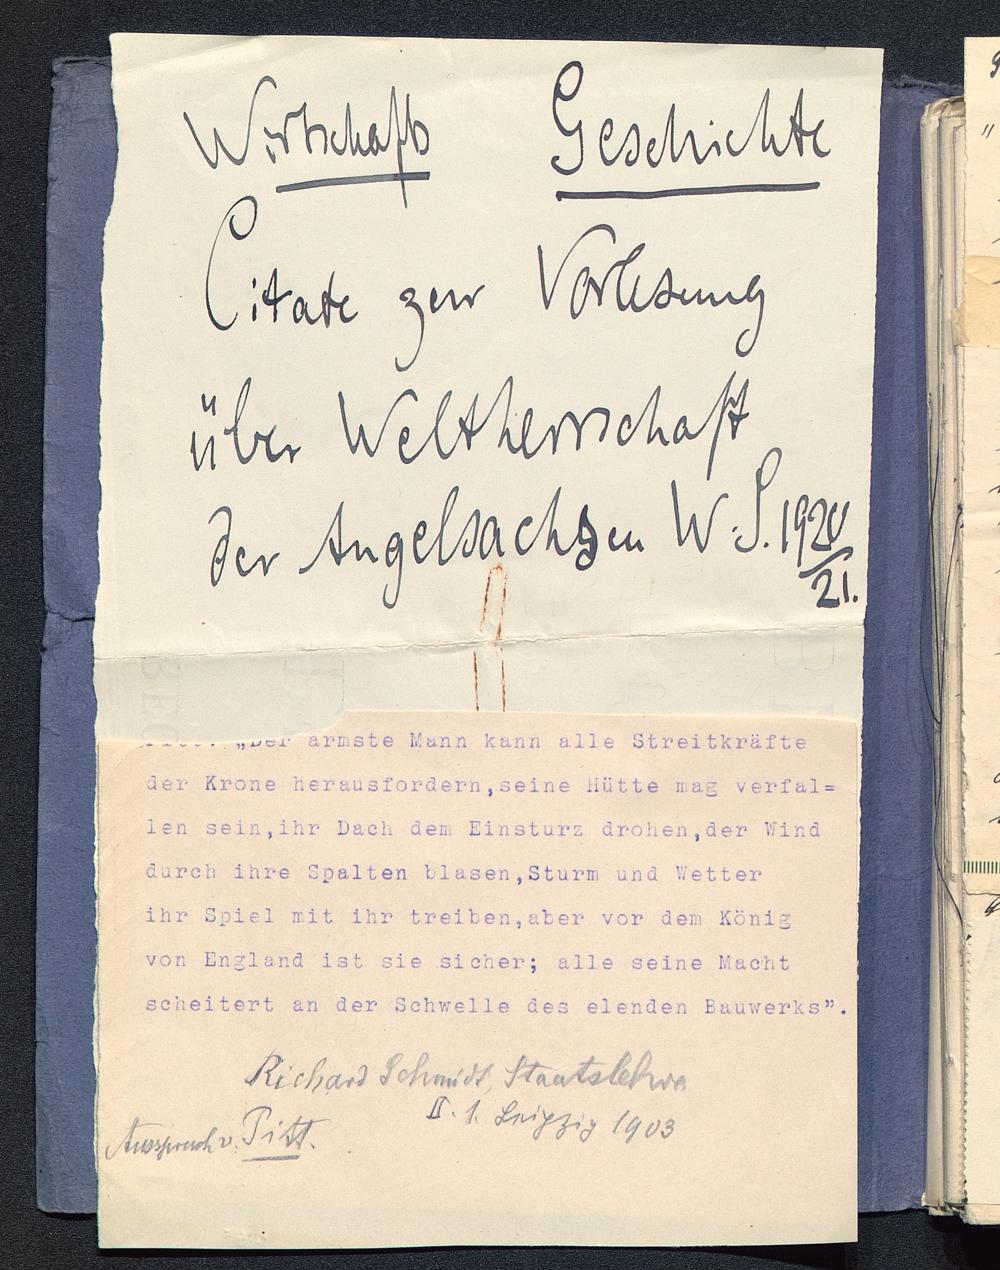 Wirtschafts Geschichte
Citate zur Vorlesung
über Weltherrschaft
der Angelsachsen W.S. 1920/21.
„Der ärmste Mann kann alle Streitkräfte
der Krone herausfordern,seine Hütte mag verfal=
len sein,ihr Dach dem Einsturz drohen,der Wind
durch ihre Spalten blasen,Sturm und Wetter
ihr Spiel mit ihr treiben,aber vor dem König
von England ist sie sicher; alle seine Macht
scheitert an der Schwelle des elenden Bauwerks”.
Richard Schmidt, Staatslehre
II. 1. Leipzig 1903
Ausspruch v. Pitt.